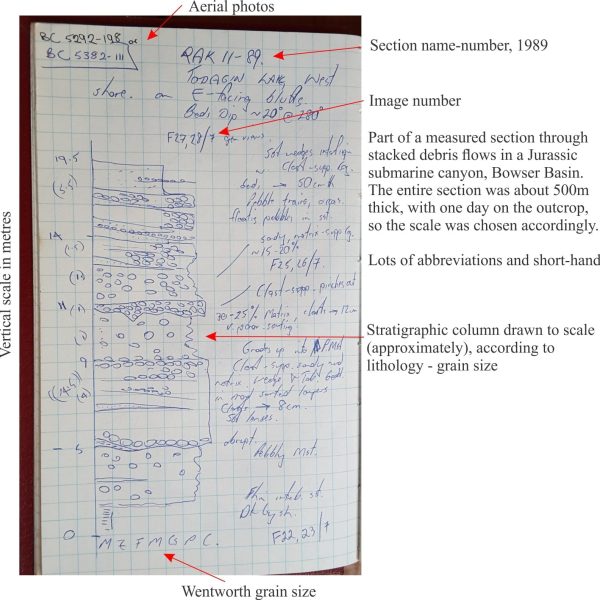 Aerial photos
BC 5292-198 or
BC 5382-111
RAK 11-89.
Section name-number, 1989
TODAGIN LAKE West
shore. on E-facing bluffs.
Beds Dip ~20° @ 280°
Image number
F27,28/7 gen views.
19.5
Sst wedges
Clast-supp
beds → 50cm th
pebble trains,
floating pebbles in sst.
14
sandy, matrix-supp cg.
~15-20%
F25,26/7.
Clast-supp. pinches out
11
Matrix, clasts → 12cm
v. poor sorting
Grades up into
9
Clast-supp. sandy mud
matrix
in
Clasts → 8cm.
Sst lenses.
5
abrupt.
Pebbly Mst.
Thin interb. st.
Dk Gy sh.
0
M Z F M C G P C.
F22,23/7
Part of a measured section through
stacked debris flows in a Jurassic
submarine canyon, Bowser Basin.
The entire section was about 500m
thick, with one day on the outcrop,
so the scale was chosen accordingly.
Lots of abbreviations and short-hand
Stratigraphic column drawn to scale
(approximately), according to
lithology - grain size
Vertical scale in metres
Wentworth grain size